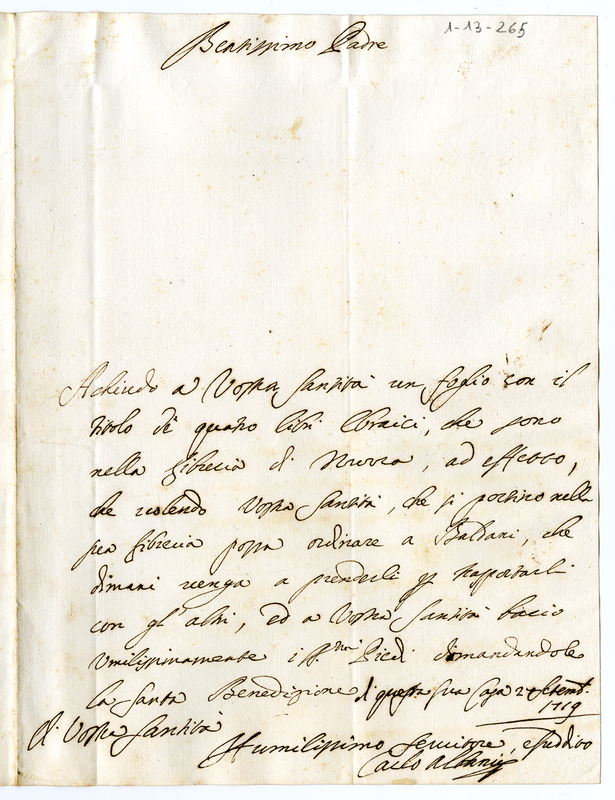 1-13-265
Beatissimo Padre
Achiudo a Vostra Santità un foglio con il
titolo di quatro libri Ebraici, che sono
nella libreria di Nuova, ad effetto,
che volendo Vostra Santità, che si portino nella
sua libreria possa ordinare a Baldani, che
dimani venga a prenderli per trasportarli
con gl'altri, ed a Vostra Santità bacio
Umilissimamente i SS.mi Piedi domandandole
la Santa Benedizione di questa sua Casa 2 Settemb.
1719
di Vostra Santità
Humilissimo servitore, e suddito
Carlo Albani